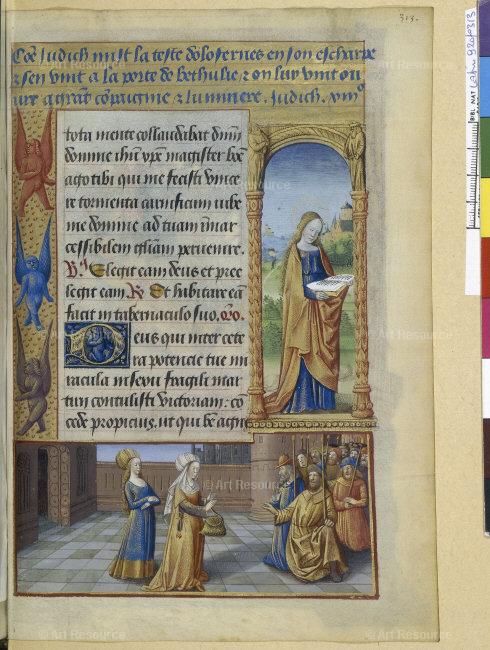 313.
Coe Judich mist la teste dolofernes en son escharpe
z sen vint a la porte de bethulie z on luy vint ou
urir a grant compaignie z lumiere. Judich. xiii°
tota mente collaudabat dnm
domine ihu xpe magister bone
ago tibi qui me fecisti vince
re tormenta carnificum iube
me domine ad tuam inmar
cessibilem gliam pervenire.
Elegit eam deus et pree
legit eam. R Et habitare eam
facit in tabernaculo suo. oro.
Deus qui inter cete
ra potencie tue mi
racula in sexu fragili mar
tirii contulisti victoriam: con
cede propicius, ut qui be
BIBL. NAT.
Latin 920 f°313
© Art Resource
© Art Resource
© Art Resource
© Art Resource
© Art Resource